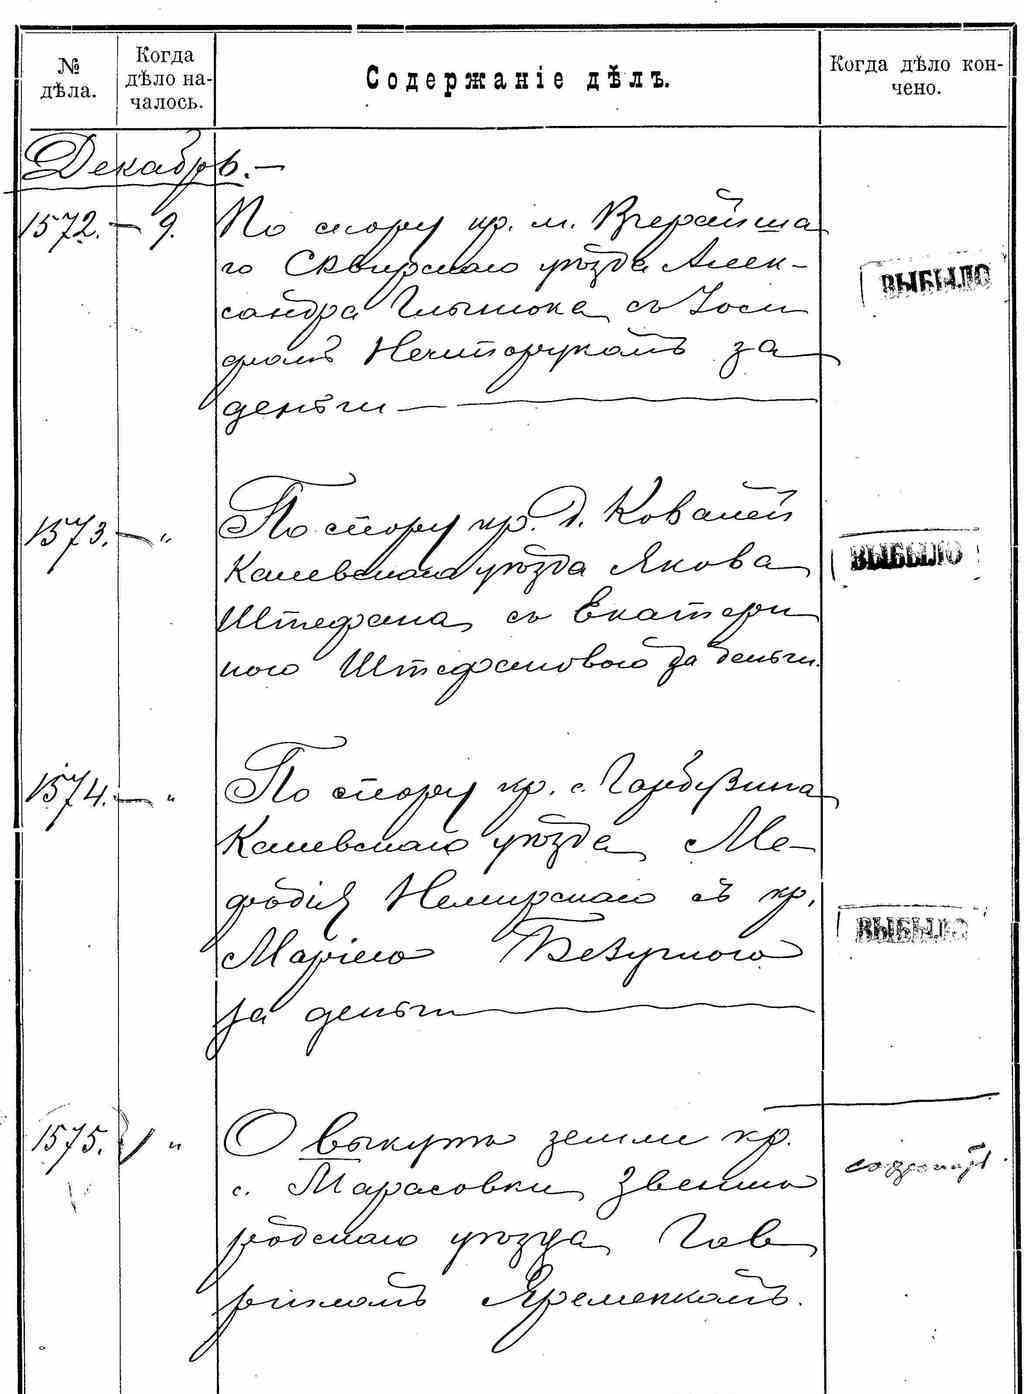 № дѣла.
Когда дѣло на-
чалось.
Содержаніе дѣлъ.
Когда дѣло кон-
чено.
Декабрь.—
1572.— 9. По спору кр. м. Вчерайша
го Сквирскаго уѣзда Алек-
сандра с Іоси
фомъ Нечипорукомъ за
деньги —
ВЫБЫЛО
1573.— „ По спору кр. д. Ковалей
Каневскаго уѣзда Якова
Штефана съ Екатери
ною Штефановою за деньги.
ВЫБЫЛО
1574.— „ По спору кр. с. Гарбузина
Каневскаго уѣзда Ме-
фодія Немирскаго съ кр.
Маріею Безуглою
за деньги —
ВЫБЫЛО
1575. „ О выкупѣ земли кр.
с. Тарасовки Звениго
родскаго уѣзда Гав
риломъ Яременкомъ.